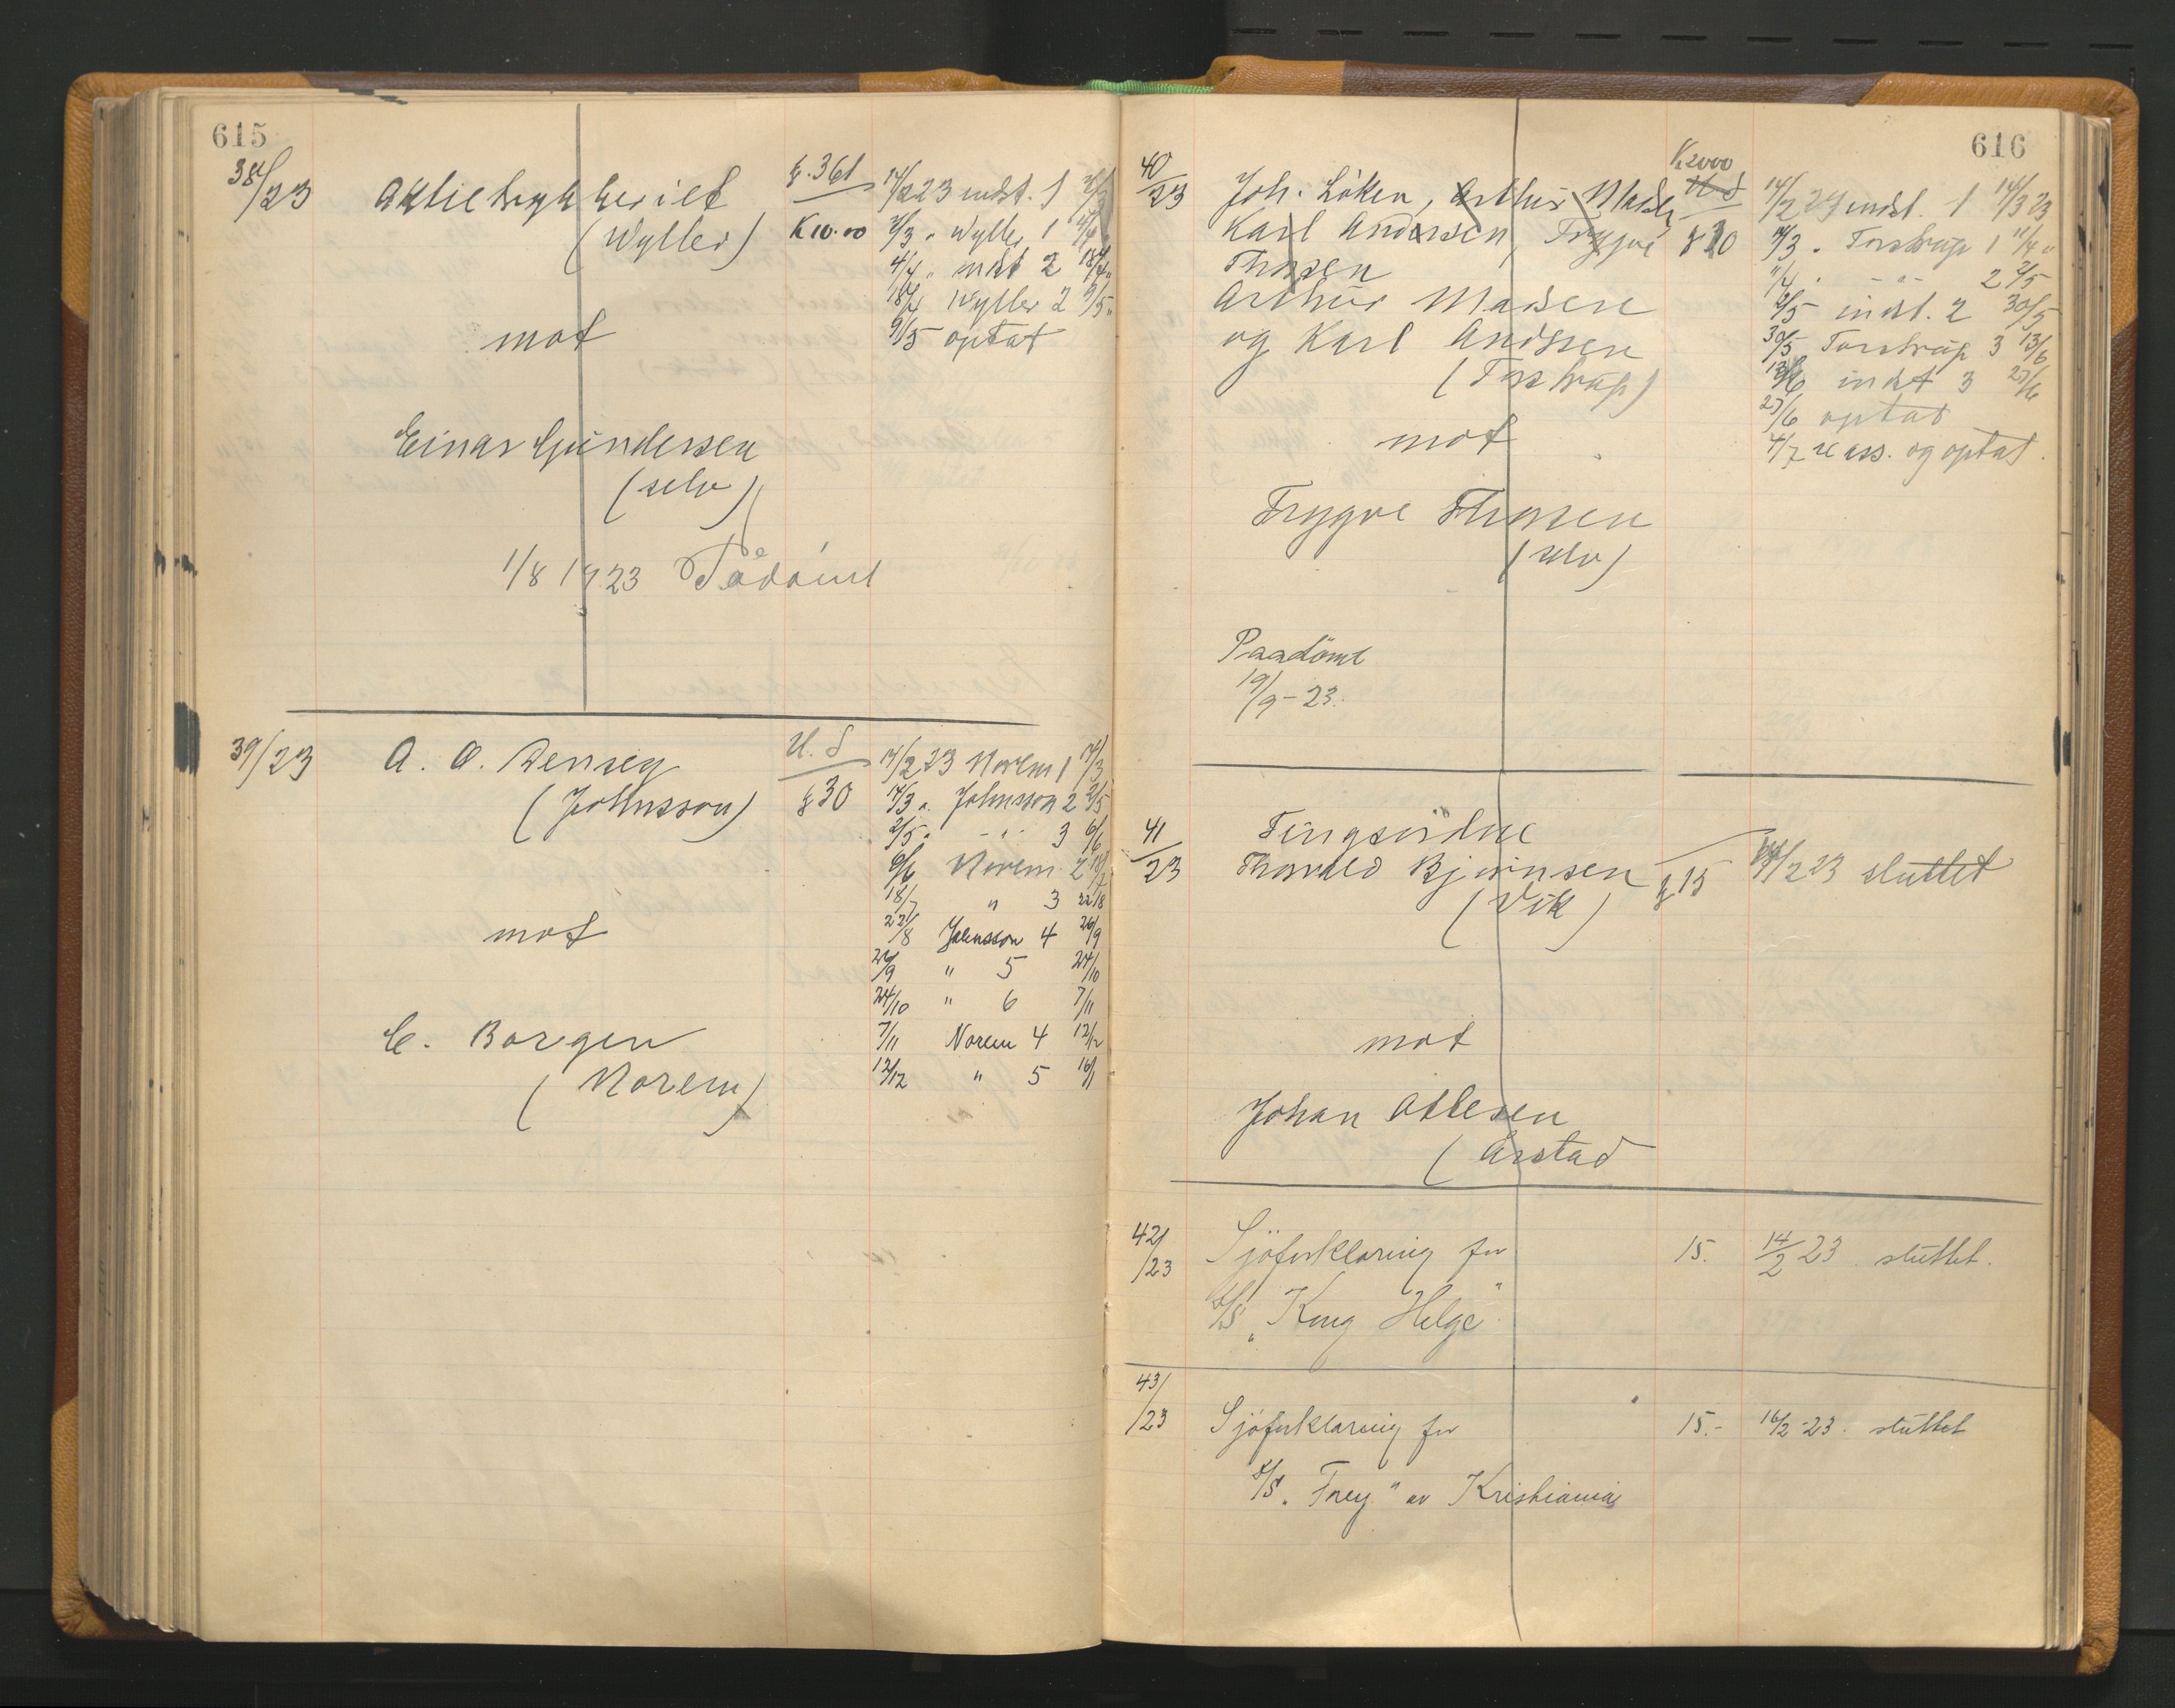 615
38/23 Aktietrykkeriet
(Wyller)
g. 361
K 10.00
14/2 23 indst. 1
7/3 " Wyller 1 4/4
4/4 " indst 2 18/4 "
18/4 Wyller 2 9/5 "
9/5 optat
mot
Einar Gundersen
(selv)
1/8 1923 Pådömt
39/23 A. O.
(Johnsson)
U. S
g 30
14/2 23 Norem 1 14/3
14/3 " Johnsson 2 2/5
2/5 " - " - 3 6/6
6/6 Norem 2 18/7
18/7 " 3 22/8
22/8 Johnsson 4 26/9
26/9 " 5 24/10
24/10 " 6 7/11
7/11 Norem 4 12/12
12/12 " 5 16/1
mot
C. Borgen
(Norem)
616
40/23 Joh. Löken, Arthur Madsen
Karl Andersen, Trygve
Thosen
Arthur Madsen
og Karl Andssen
(Torstrup)
K 2000
U S
g 30
14/2 23 indst. 1 14/3 23
14/3 " Torstrup 1 11/4 "
11/4 " - " - 2 2/5
2/5 indst. 2 30/5
30/5 Torstrup 3 13/6
13/6 indst 3 27/6
27/6 optat
4/7 reass. og optat.
mot
Trygve Thosen
(selv)
Paadömt
19/9-23.
41/23 Tingsvidne
Thorvald Bjørnsen
(Vik)
g 15
14/2 23 sluttet
mot
Johan Atlesen
(Årstad
42/23 Sjöforklaring for
S/S "Kong Helge"
15. 14/2 23 sluttet.
43/23 Sjöforklaring for
S/S "Frey" av Kristiania
15.- 16/2-23. sluttet